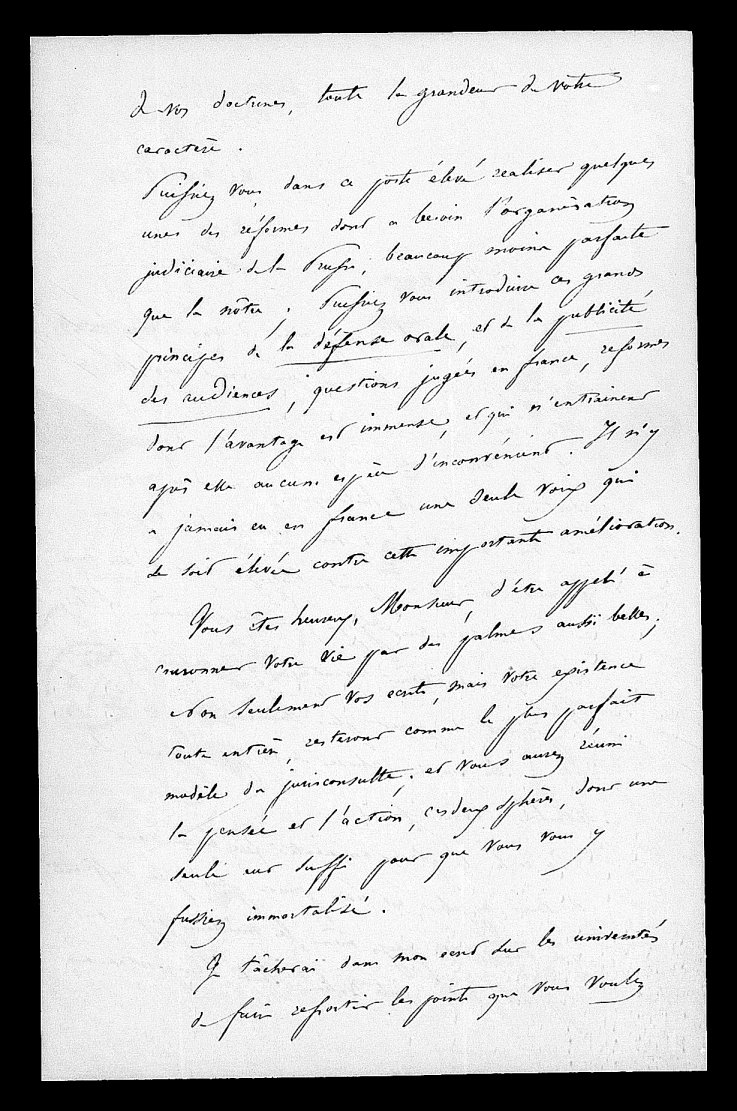 de vos doctrines, toute la grandeur de votre
caractère.
Puissiez vous, dans ce poste élevé realiser quelques
unes des réformes dont a besoin l'organisation
judiciaire de la Prusse, beaucoup moins parfaite
que la nôtre ; Puissiez vous introduire ces grands
principes de la défense orale, et de la publicité
des audiences, questions jugées en france, reformes
dont l'avantage est immense, et qui n'entrainent
après elle aucune espèce d'inconvénient. Il n'y
a jamais eu en france une seule voix qui
se soit élevée contre cette importante amélioration.
Vous êtes heureux, Monsieur, d'être appelé à
couronner votre vie par des palmes aussi belles ;
Non seulement vos ecrits, mais votre existence
toute entière, resteront comme le plus parfait
modèle du jurisconsulte ; et vous aurez réuni
la pensée et l'action, ces deux sphères, dont une
seule eut suffi pour que vous vous y
fussiez immortalisé.
Je tâcherai dans mon ecrit sur les universités
de faire ressortir les points que vous voulez